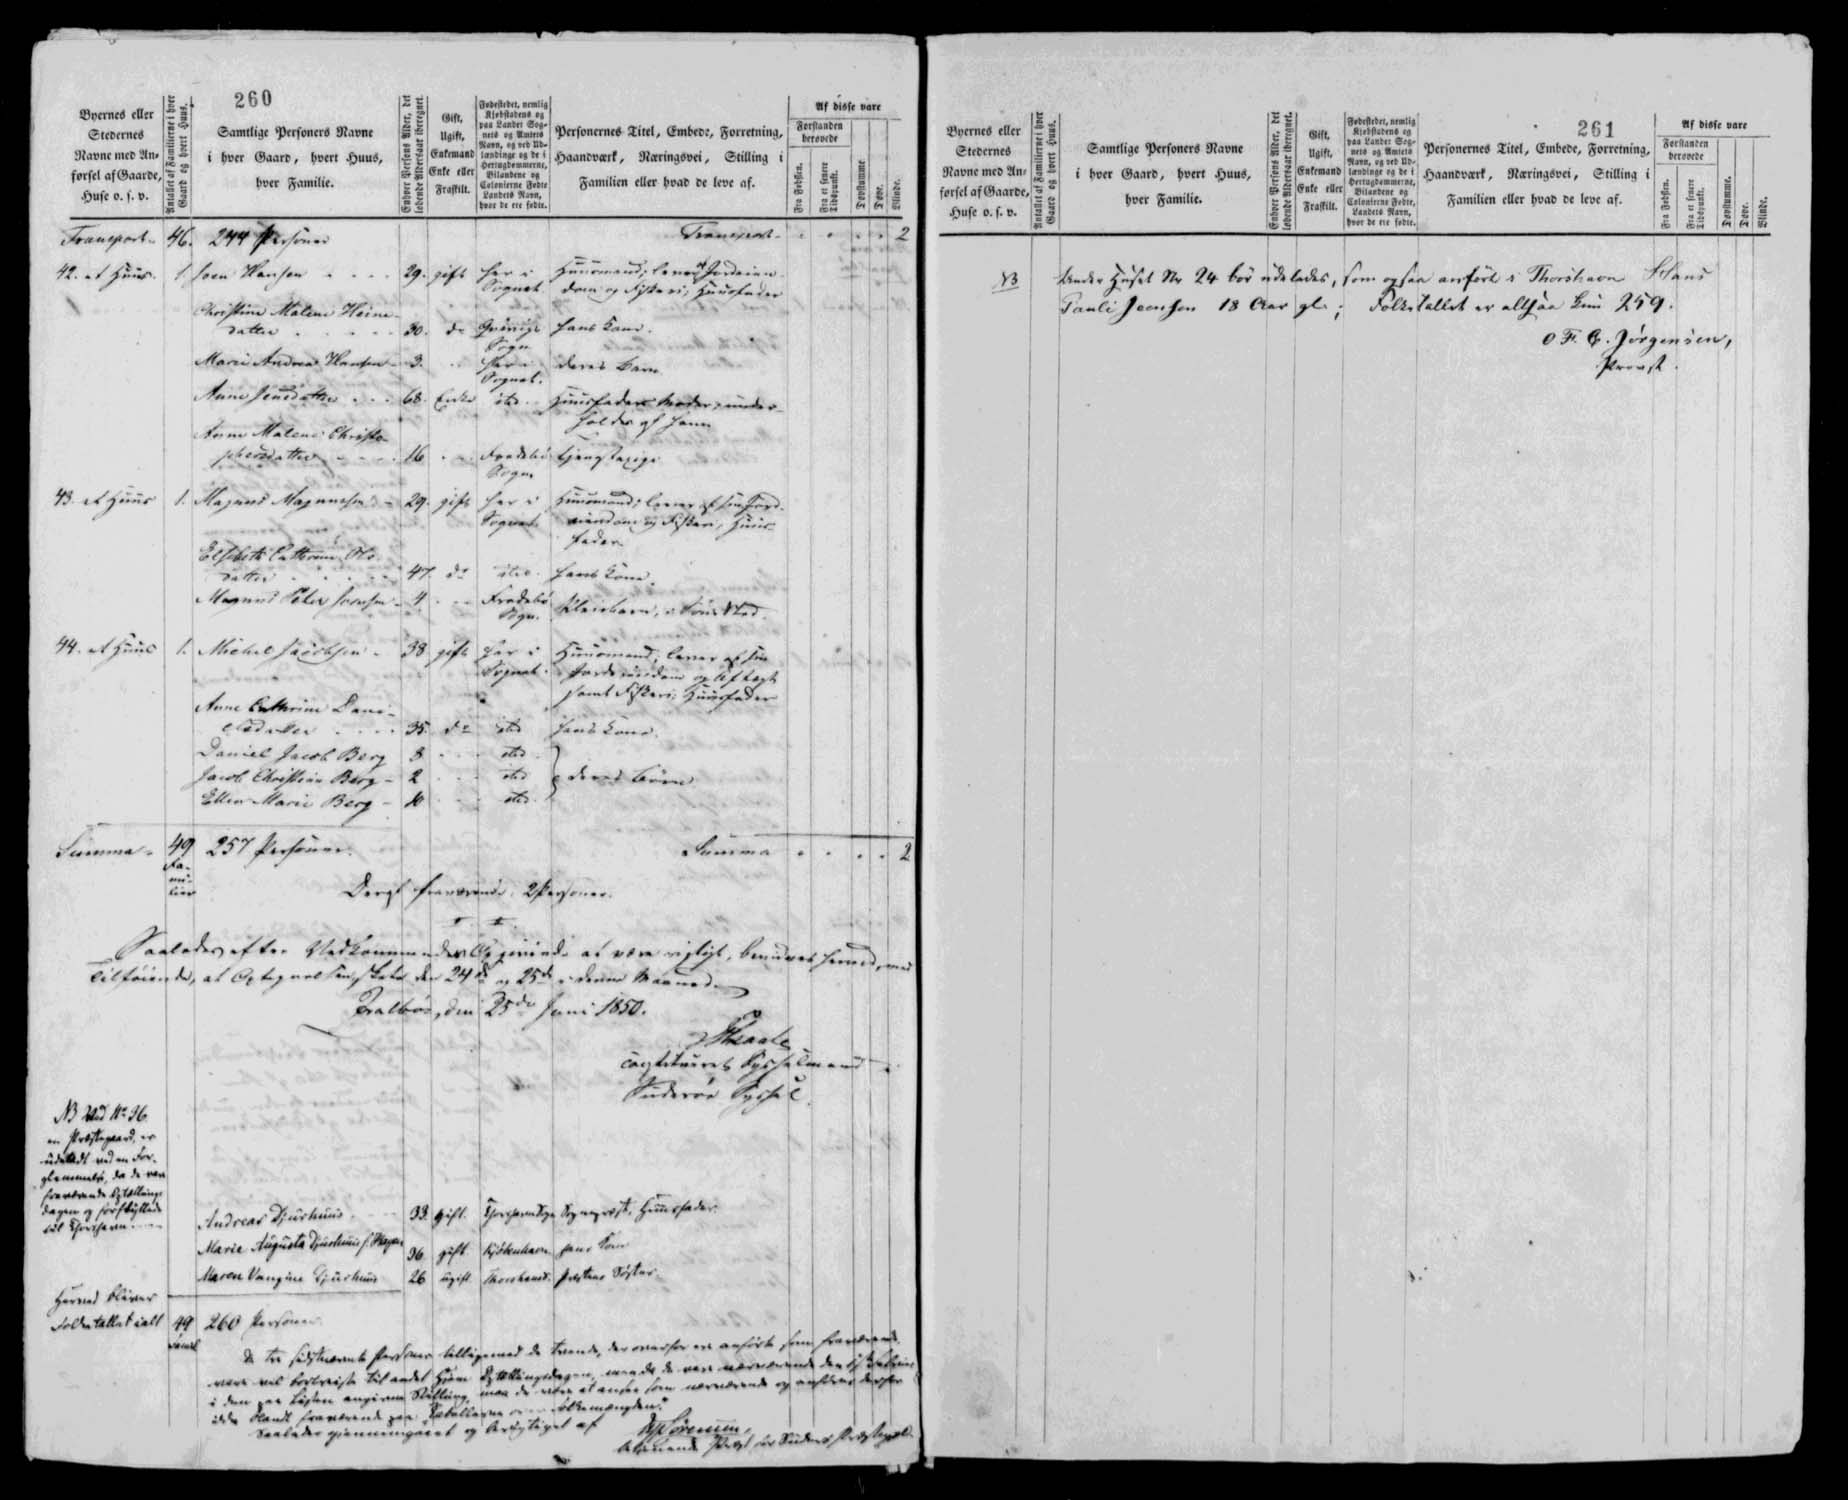 260
Byernes eller
Stedernes
Navne med An-
førsel af Gaarde,
Huse o. s. v.
Antallet af Familierne i hver
Gaard og hvert Huus.
Samtlige Personers Navne
i hver Gaard, hvert Huus,
hver Familie.
Enhver Persons Alder, det
løbende Aldersaar iberegnet.
Gift,
Ugift,
Enkemand
Enke eller
Fraskilt.
Fødestedet, nemlig
Kjøbstadens og
paa Landet Sog-
nets og Amtets
Navn, og ved Ud-
lændinge og de i
Hertugdømmerne,
Bilandene og
Colonierne Fødte
Landets Navn,
hvor de ere fødte.
Personernes Titel, Embede, Forretning,
Haandværk, Næringsvei, Stilling i
Familien eller hvad de leve af.
Af disse vare
Forstanden
berøvede
Fra Fødslen.
Fra et senere
Tidspunkt.
Døvstumme
Døve.
Blinde.
Transport - 46. 244 Personer Transport - 2
42. et Huus. 1. Joen Hansen 29. gift her i Huusmand; lever af Jordeien-
Sognet dom og Fiskeri; Huusfader
Christine Malene Heine-
datter 30. do Qvivigs hans Kone.
Sogn
Marie Andrea Hansen 3. her i deres Barn
Sognet.
Anne Jensdatter 68. Enke ibd. Huusfaders Moder, under-
holdes af ham
Anne Malene Christo-
phersdatter 16 Frodebø Tjenestepige
Sogn
43. et Huus 1. Magnus Magnussen 29. gift her i Huusmand; lever af sin Jord-
Sognet eiendom og Fiskeri, Huus-
fader
Elsebeth Cathrine Ols-
datter 47. do ibd. hans Kone.
Magnus Peter Joensen 4 Frodebø Pleiebarn, i Søns Sted.
Sogn.
44. et Huus 1. Michel Jacobsen 38 gift her i Huusmand; lever af sin
Sognet Jordeiendom og Aftægt
samt Fiskeri; Huusfader
Anne Cathrine Dani-
elsdatter 35. do ibd hans Kone.
Daniel Jacob Berg 8 ibd
Jacob Christian Berg 2 ibd deres Børn
Ellen Marie Berg 10 ibd.
Summa - 49 257 Personer. Summa 2
Fa-
mi-
lier
Deraf fraværende: 2 Personer.
Saaledes efter Vedkommendes Opgivende at være rigtigt, bevidnes herved, med
Tilføiende, at Optegnelsen skete den 24de og 25de i denne Maaned.
Tvalbøe, den 25de Juni 1850.
constitueret Sysselmand i
Suderøe Syssel.
NB Ved No 36
en Præstegaard, er
udeladt ved en For-
glemmelse, da de vare
fraværende Optællings-
dagen og
til Thorshavn
Andreas Djurhuus 33. gift. Thorshavn Sogn Sognepræst, Huusfader.
Marie Augusta Djurhuus f. Hagen 36 gift Kjøbenhavn hans Kone
Maren Vangine Djurhuus 26 ugift Thorshavn. Præstens Søster.
Herved bliver
Folketallet ialt 49 260 Personer.
Famil
De tre sidstnævnte Personer tilligemed de tvende, der ovenfor ere anførte som fraværende
vare vel bortreiste til andet Hjem Optællingsdagen, men da de vare nærværende den
i den paa Listen angivne Stilling, maa de være at ansee som nærværende og anføres derfor
ikke blandt fraværende paa Tabellerne over Folkemængden.
Saaledes gjennemgaaet og berigtiget af
Sørensen,
Præst for Suderø Præstegjeld.
261
Byernes eller
Stedernes
Navne med An-
førsel af Gaarde,
Huse o. s. v.
Antallet af Familierne i hver
Gaard og hvert Huus.
Samtlige Personers Navne
i hver Gaard, hvert Huus,
hver Familie.
Enhver Persons Alder, det
løbende Aldersaar iberegnet.
Gift,
Ugift,
Enkemand
Enke eller
Fraskilt.
Fødestedet, nemlig
Kjøbstadens og
paa Landet Sog-
nets og Amtets
Navn, og ved Ud-
lændinge og de i
Hertugdømmerne,
Bilandene og
Colonierne Fødte,
Landets Navn,
hvor de ere fødte.
Personernes Titel, Embede, Forretning,
Haandværk, Næringsvei, Stilling i
Familien eller hvad de leve af.
Af disse vare
Forstanden
berøvede
Fra Fødslen.
Fra et senere
Tidspunkt.
Døvstumme.
Døve.
Blinde.
NB Under Huset Nr 24 bør udelades, som ogsaa anført i Thorshavn Hans
Pauli Joensen 18 Aar gl.; Folketallet er altsaa kun 259.
O. F. C. Jørgensen,
Provst.